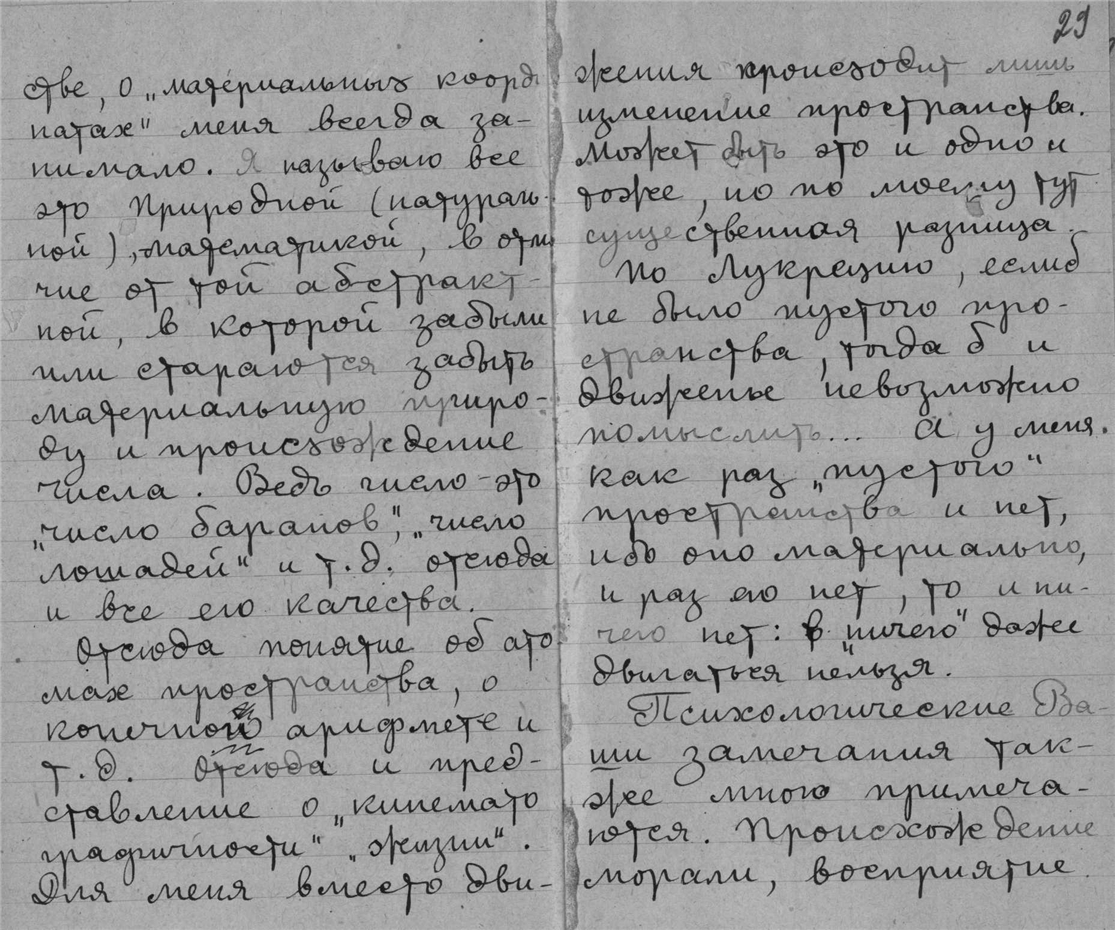 стве, о „материальных коорди
натах" меня всегда за-
нимало. Я называю все
это Природной (натураль-
ной), математикой, в отли
чие от той абстракт-
ной, в которой забыли
или стараются забыть
материальную приро-
ду и происхождение
числа. Ведь число - это
„число баранов", „число
лошадей" и т.д. отсюда
и все его качества.
Отсюда понятие об ато
мах пространства, о
конечной арифмете и
т.д. Отсюда и пред-
ставление о „кинемато
графичности" „жизни".
Для меня вместо дви-
29
жения происходит лишь
изменение пространства.
Может быть это и одно и
тоже, но по моему тут
существенная разница.
По Лукрецию, еслиб
не было пустого про-
странства, тогда б и
движенье невозможно
помыслить... А у меня.
как раз „пустого"
пространства и нет,
ибо оно материально,
и раз его нет, то и ни-
чего нет: в „ничего" даже
двигаться нельзя.
Психологические Ва-
ши замечания так-
же мною примеча-
ются. Происхождение
морали, восприятие